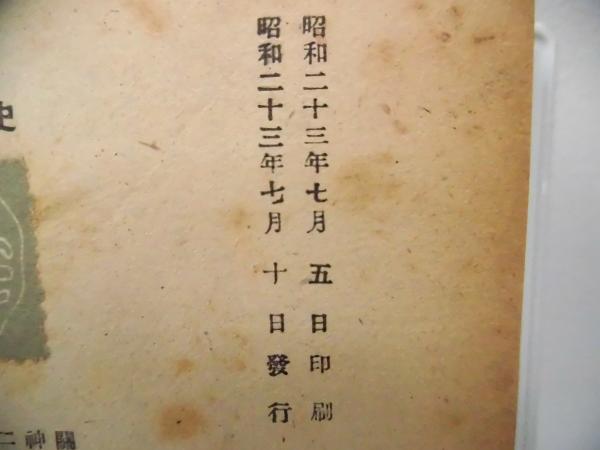 昭和二十三年七月五日印刷
昭和二十三年七月十日發行
史
關神二